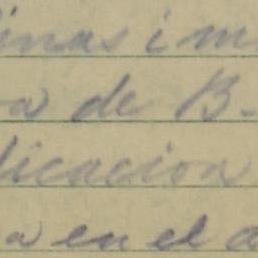 inas i m
a de B.
licacion
a en el a